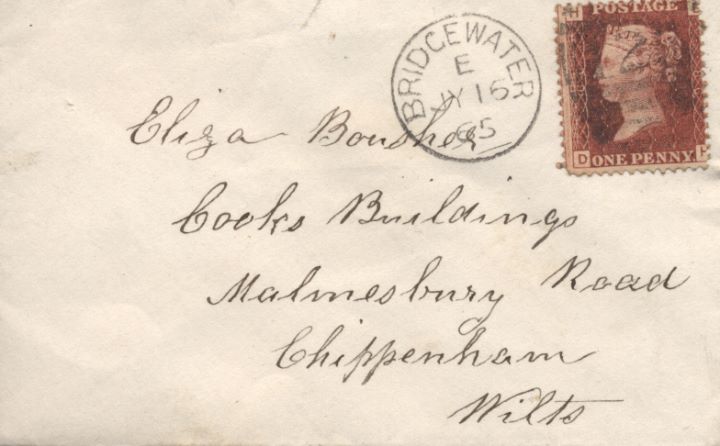 BRIDGEWATER
E
JY 16
65
POSTAGE
D ONE PENNY
Eliza Bousher
Cooks Buildings
Malmesbury Road
Chippenham
Wilts